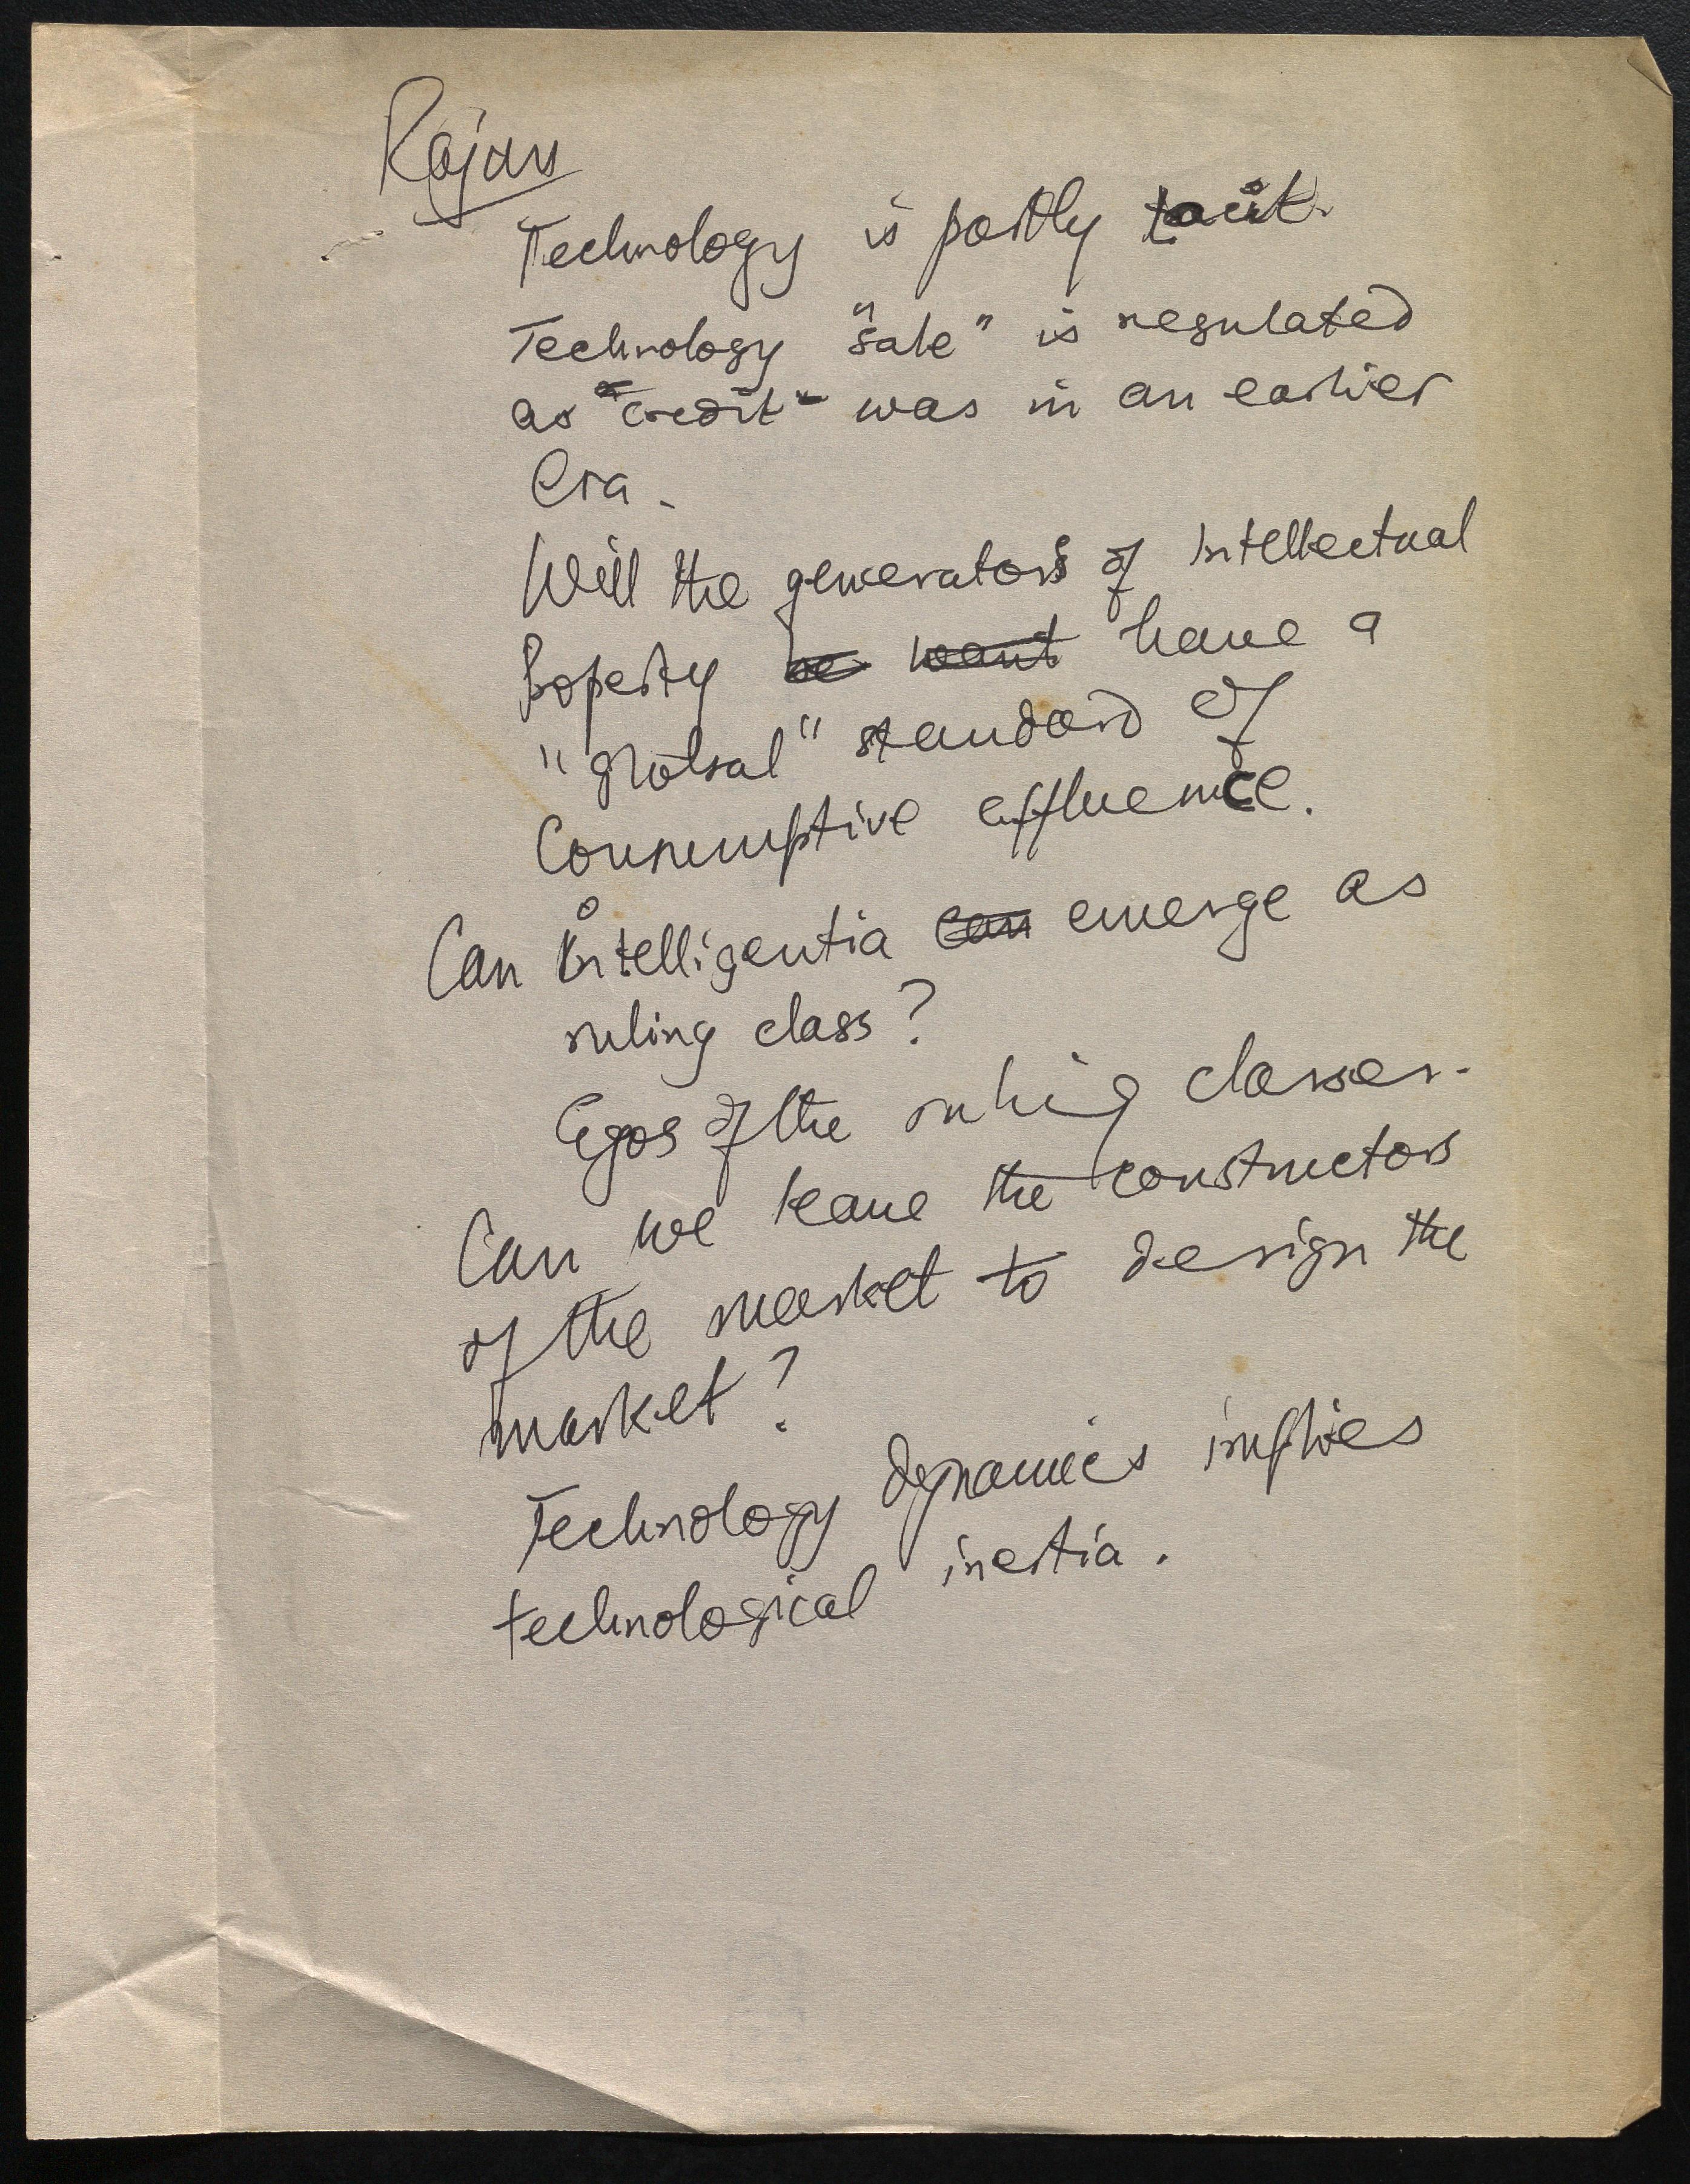 Rajan
Technology is partly tacit.
Technology "sale" is regulated
as "credit" was in an earlier
era.
Will the generators of Intellectual
Property be want have a
"global" standard of
Consumptive affluence.
Can Intelligentia can emerge as
ruling class?
Egos of the ruling classes.
Can we leave the constructors
of the market to design the
market?
Technology dynamics implies
technological inertia.